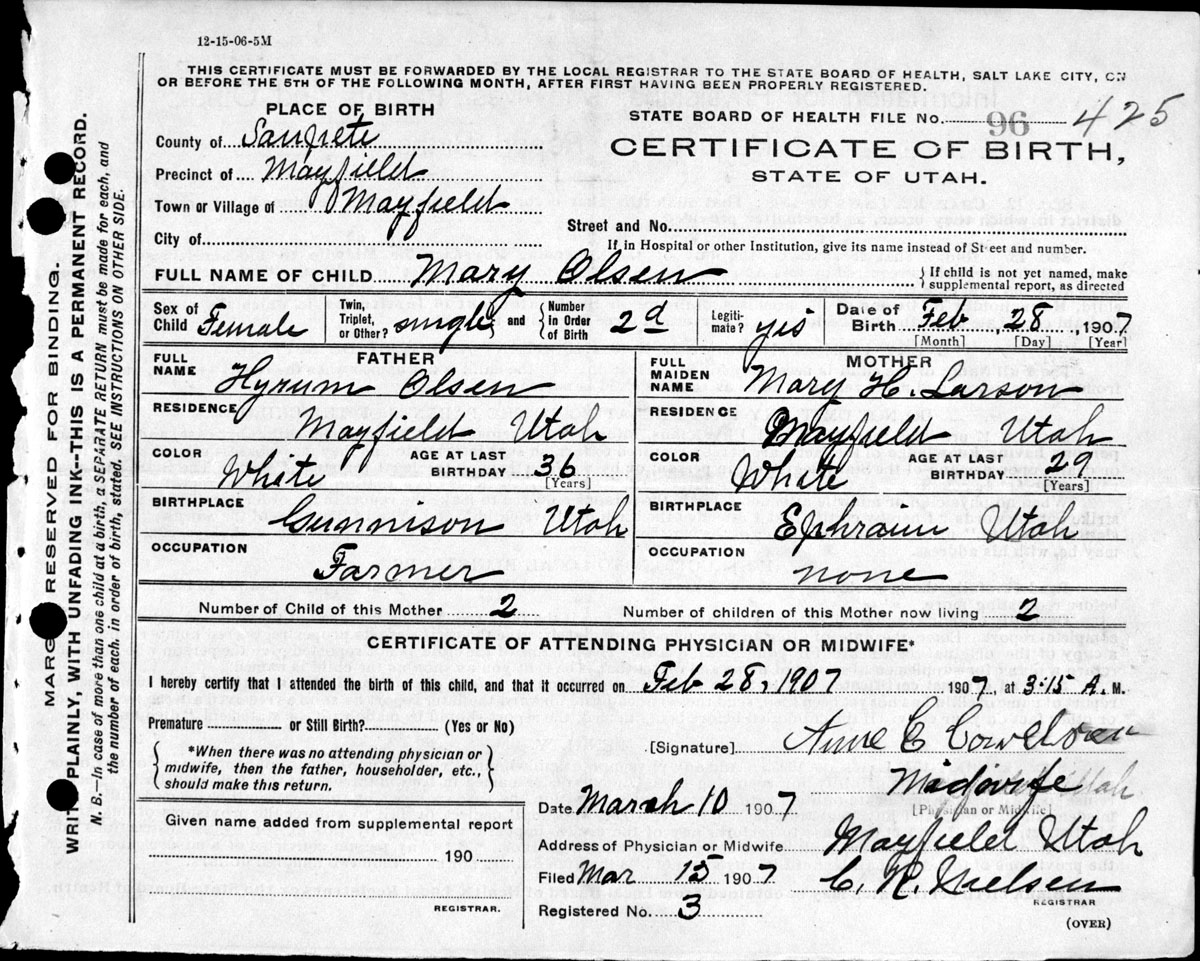 12-15-06-5M
THIS CERTIFICATE MUST BE FORWARDED BY THE LOCAL REGISTRAR TO THE STATE BOARD OF HEALTH, SALT LAKE CITY, ON
OR BEFORE THE 5TH OF THE FOLLOWING MONTH, AFTER FIRST HAVING BEEN PROPERLY REGISTERED.
PLACE OF BIRTH
County of Sanpete
Precinct of Mayfield
Town or Village of Mayfield
City of
STATE BOARD OF HEALTH FILE No. 96 425
CERTIFICATE OF BIRTH,
STATE OF UTAH.
Street and No.
If in Hospital or other Institution, give its name instead of Street and number.
FULL NAME OF CHILD Mary Olsen
If child is not yet named, make
supplemental report, as directed
Sex of Child Female
Twin, Triplet, or Other? single and Number in Order of Birth 2d
Legiti-mate? yes
Date of Birth Feb 28, 1907
[Month] [Day] [Year]
FATHER
FULL NAME Hyrum Olsen
RESIDENCE Mayfield Utah
COLOR White AGE AT LAST BIRTHDAY 36
[Years]
BIRTHPLACE Gunnison Utah
OCCUPATION Farmer
MOTHER
FULL MAIDEN NAME Mary H. Larson
RESIDENCE Mayfield Utah
COLOR White AGE AT LAST BIRTHDAY 29
[Years]
BIRTHPLACE Ephraim Utah
OCCUPATION none
Number of Child of this Mother 2 Number of children of this Mother now living 2
CERTIFICATE OF ATTENDING PHYSICIAN OR MIDWIFE*
I hereby certify that I attended the birth of this child, and that it occurred on Feb 28, 1907 1907, at 3:15 A. M.
Premature or Still Birth? (Yes or No)
*When there was no attending physician or
midwife, then the father, householder, etc.,
should make this return.
[Signature] Anne C
Midwife
[Physician or Midwife]
Date March 10 1907
Address of Physician or Midwife Mayfield Utah
Filed Mar 15 1907 C. R. Nielsen
REGISTRAR
Registered No. 3
(OVER)
Given name added from supplemental report
190
REGISTRAR.
MARGIN RESERVED FOR BINDING.
WRITE PLAINLY, WITH UNFADING INK--THIS IS A PERMANENT RECORD.
N. B.--In case of more than one child at a birth, a SEPARATE RETURN must be made for each, and
the number of each, in order of birth, stated. SEE INSTRUCTIONS ON OTHER SIDE.